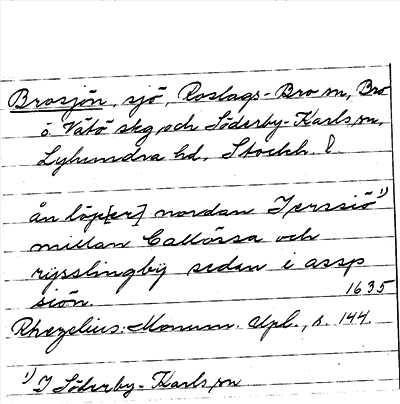 Brosjön, sjö, Roslags-Bro sn, Bro
o. Vätö skg och Söderby-Karls sn,
Lyhundra hd, Stockh. l.
ån löp[er] nordan Jerssiö¹⁾
millan Callössa och
rysslingbÿ sedan i assp
siön. 1635
Rhezelius: Monum. Upl., s. 144.
¹⁾ I Söderby-Karls sn